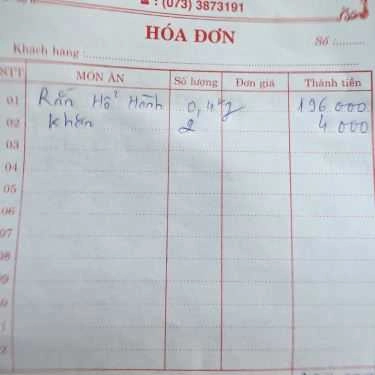 ☎ : (073) 3873191
HÓA ĐƠN
Số :
Khách hàng :
STT MÓN ĂN Số lượng Đơn giá Thành tiền
01 Rắn Hổ Hành 0,4kg 196 000
02 Khăn 2 4 000
03
04
05
06
07
08
09